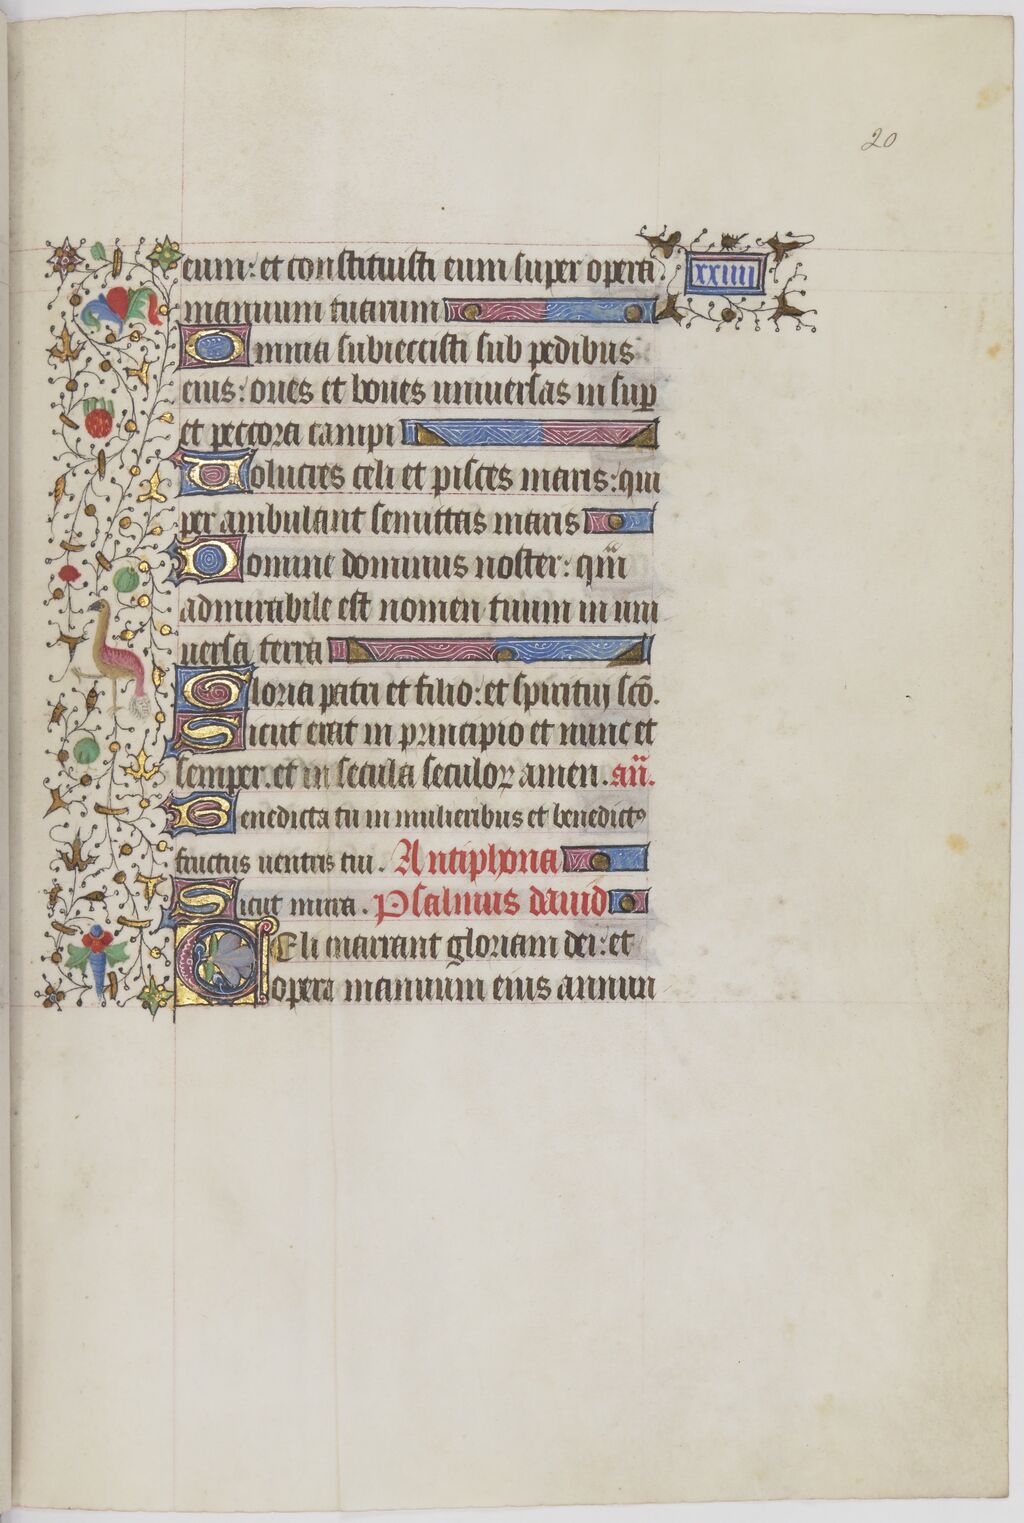 20
xxiiii
eum: et constituisti eum super opera
manuum tuarum
Omnia subiecisti sub pedibus
eius: oues et boues uniuersas in sup
et peccora campi
Uolucres celi et pisces maris: qui
per ambulant semittas maris
Domine dominus noster: qm̄
admirabile est nomen tuum in uni
uersa terra
Gloria patri et filio: et spiritui sc̄o.
Sicut erat in principio et nunc et
semper. et in secula seculoꝝ amen. an̄.
Benedicta tu in mulieribus et benedictꝰ
fructus uentris tui. Antiphona
Sicut mirra. Psalmus dauid
Celi enarrant gloriam dei: et
opera manuum eius annun